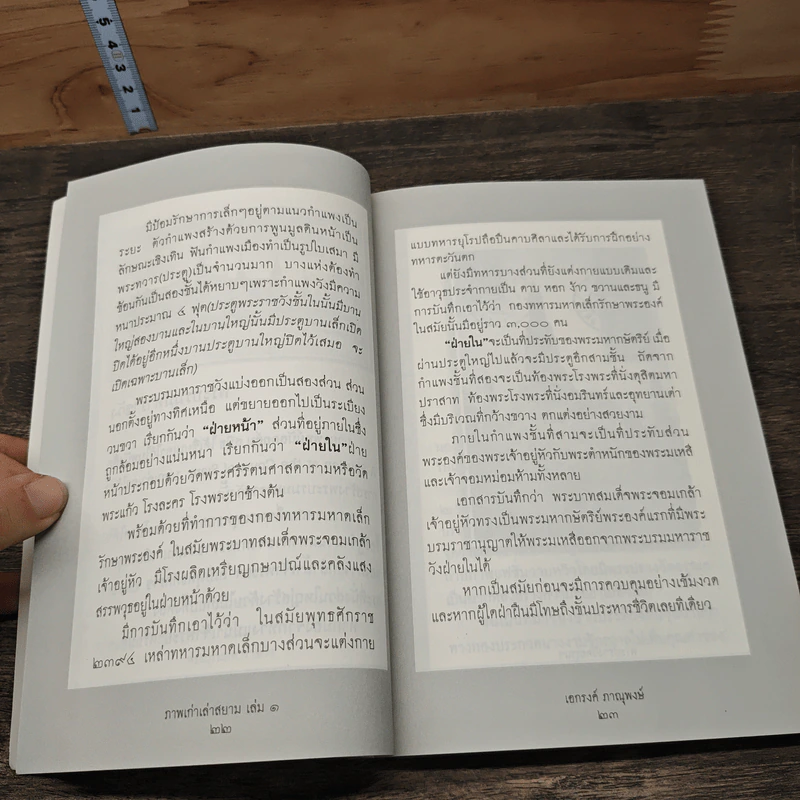 5 4 3 2 1
มีป้อมรักษาการเล็กๆอยู่ตามแนวกำแพงเป็น
ระยะ ตัวกำแพงสร้างด้วยการพูนมูลดินหน้าเป็น
ลักษณะเชิงเทิน ฟันกำแพงเมืองทำเป็นรูปใบเสมา มี
พระทวาร(ประตู)เป็นจำนวนมาก บางแห่งต้องทำ
ซ้อนกันเป็นสองชั้นได้หยาบๆเพราะกำแพงวังมีความ
หนาประมาณ ๔ ฟุต(ประตูพระราชวังชั้นในนั้นมีบาน
ใหญ่สองบานและในบานใหญ่นั้นมีประตูบานเล็กเปิด
ปิดได้อยู่อีกหนึ่งบานประตูบานใหญ่ปิดไว้เสมอ จะ
เปิดเฉพาะบานเล็ก)
พระบรมมหาราชวังแบ่งออกเป็นสองส่วน ส่วน
นอกตั้งอยู่ทางทิศเหนือ แต่ขยายออกไปเป็นระเบียง
วนขวา เรียกกันว่า "ฝ่ายหน้า" ส่วนที่อยู่ภายในซึ่ง
ถูกล้อมอย่างแน่นหนา เรียกกันว่า "ฝ่ายใน"ฝ่าย
หน้าประกอบด้วยวัดพระศรีรัตนศาสดารามหรือวัด
พระแก้ว โรงละคร โรงพระยาช้างต้น
พร้อมด้วยที่ทำการของกองทหารมหาดเล็ก
รักษาพระองค์ ในสมัยพระบาทสมเด็จพระจอมเกล้า
เจ้าอยู่หัว มีโรงผลิตเหรียญกษาปณ์และคลังแสง
สรรพวุธอยู่ในฝ่ายหน้าด้วย
มีการบันทึกเอาไว้ว่า ในสมัยพุทธศักราช
๒๓๙๔ เหล่าทหารมหาดเล็กบางส่วนจะแต่งกาย
ภาพเก่าเล่าสยาม เล่ม ๑
๒๒
แบบทหารยุโรปถือปืนคาบศิลาและได้รับการฝึกอย่าง
ทหารตะวันตก
แต่ยังมีทหารบางส่วนที่ยังแต่งกายแบบเดิมและ
ใช้อาวุธประจำกายเป็น ดาบ หอก ง้าว ขวานและธนู มี
การบันทึกเอาไว้ว่า กองทหารมหาดเล็กรักษาพระองค์
ในสมัยนั้นมีอยู่ราว ๓,๐๐๐ คน
"ฝ่ายใน"จะเป็นที่ประทับของพระมหากษัตริย์ เมื่อ
ผ่านประตูใหญ่ไปแล้วจะมีประตูอีกสามชั้น ถัดจาก
กำแพงชั้นที่สองจะเป็นท้องพระโรงพระที่นั่งดุสิตมหา
ปราสาท ท้องพระโรงพระที่นั่งอมรินทร์และอุทยานเต่า
ซึ่งมีบริเวณที่กว้างขวาง ตกแต่งอย่างสวยงาม
ภายในกำแพงชั้นที่สามจะเป็นที่ประทับส่วน
พระองค์ของพระเจ้าอยู่หัวกับพระตำหนักของพระมเหสี
และเจ้าจอมหม่อมห้ามทั้งหลาย
เอกสารบันทึกว่า พระบาทสมเด็จพระจอมเกล้า
เจ้าอยู่หัวทรงเป็นพระมหากษัตริย์พระองค์แรกที่มีพระ
บรมราชานุญาตให้พระมเหสีออกจากพระบรมมหาราช
วังฝ่ายในได้
หากเป็นสมัยก่อนจะมีการควบคุมอย่างเข้มงวด
และหากผู้ใดฝ่าฝืนมีโทษถึงชั้นประหารชีวิตเลยทีเดียว
เอกรงค์ ภาณุพงษ์
๒๓